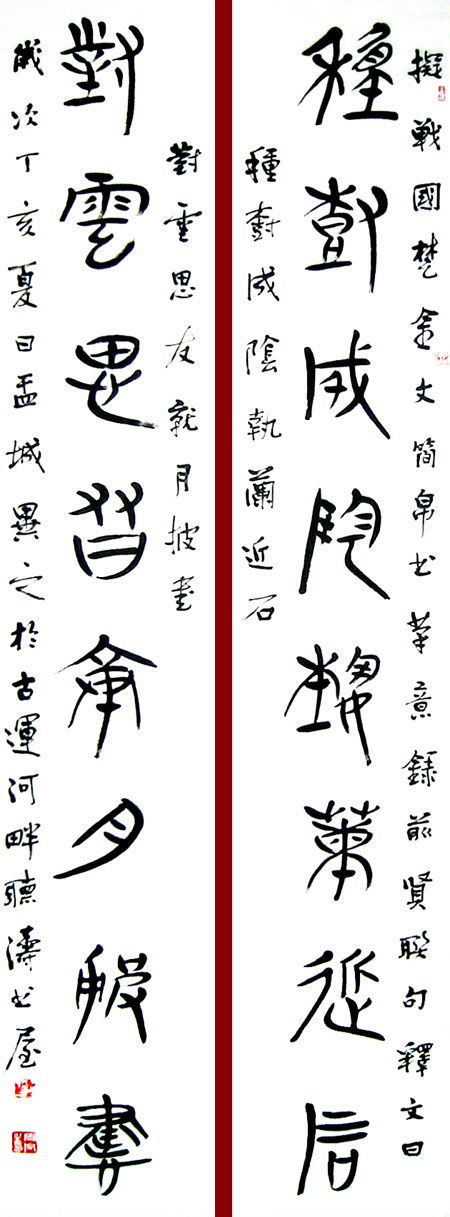 擬戰國楚金文簡帛書筆意錄前賢聯句釋文曰
種樹成陰執蘭近石
種樹成陰執蘭近石
對雲思友就月披書
對雲思友就月披書
歲次丁亥夏日盂城異之於古運河畔聽濤書屋